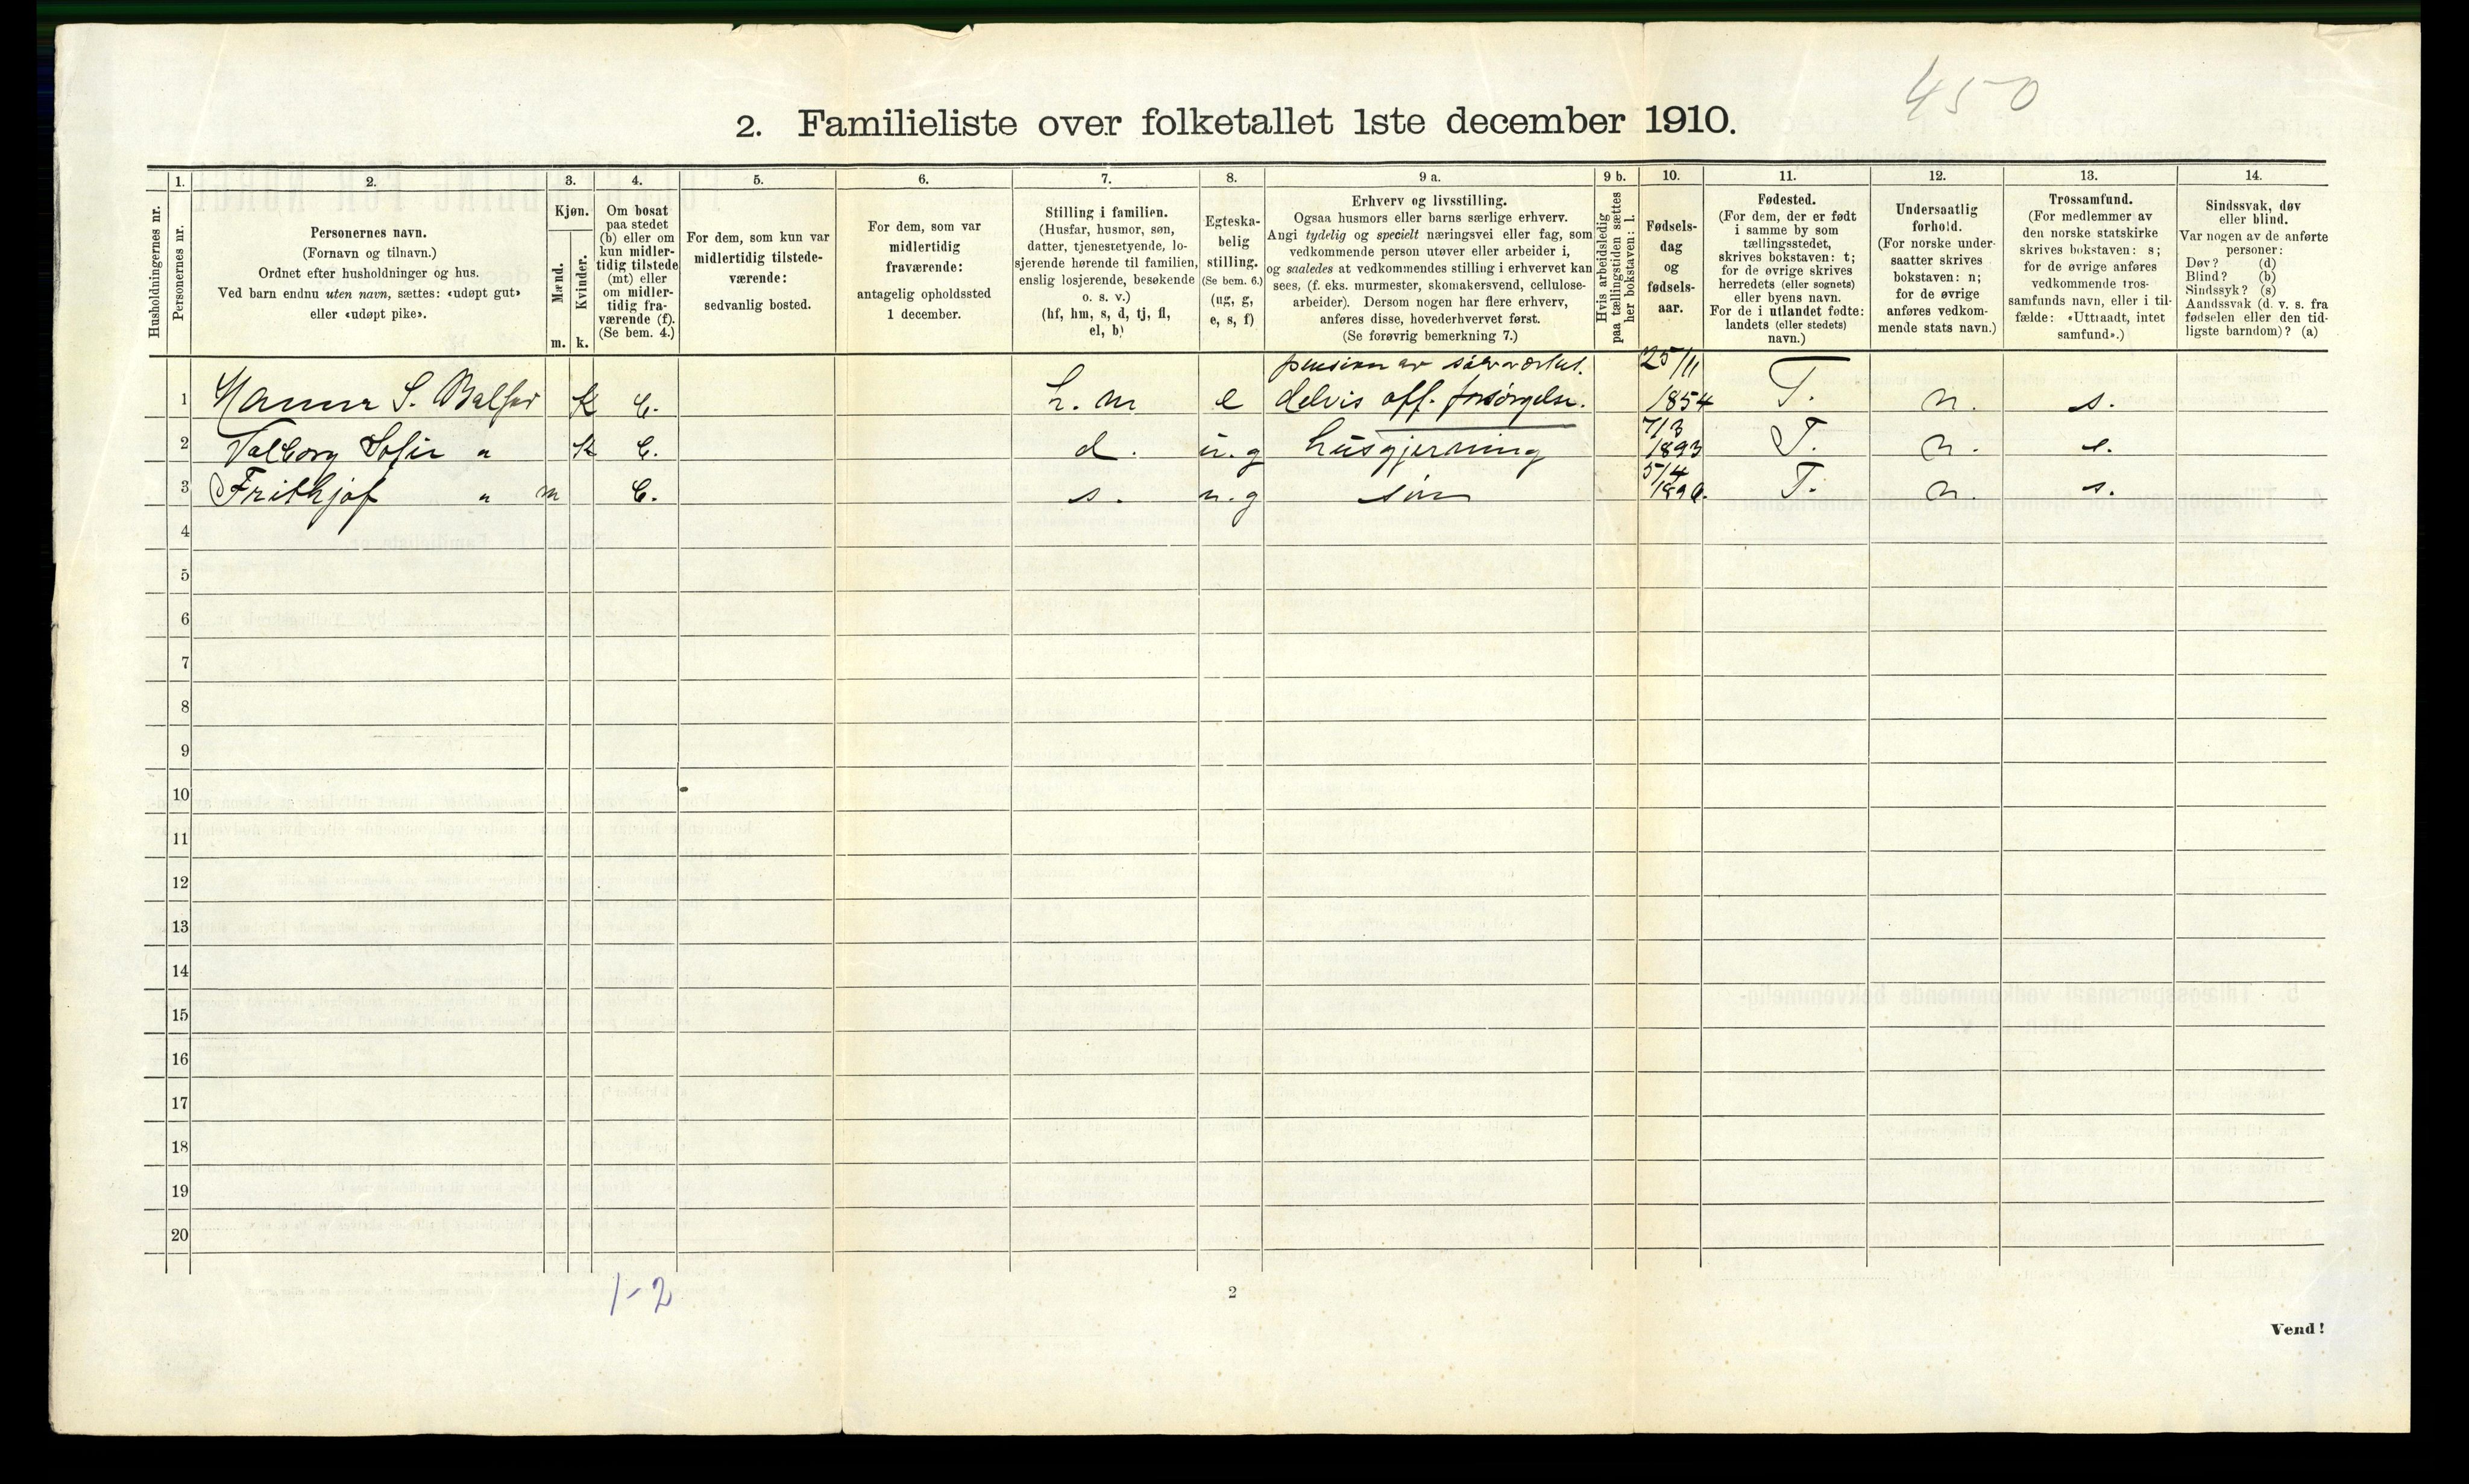 450
2. Familieliste over folketallet 1ste december 1910.
Husholdningernes nr.
1.
Personernes nr.
2.
Personernes navn.
(Fornavn og tilnavn.)
Ordnet efter husholdninger og hus.
Ved barn endnu uten navn, sættes: «udøpt gut»
eller «udøpt pike».
3.
Kjøn.
Mænd.
Kvinder.
m. k.
4.
Om bosat
paa stedet
(b) eller om
kun midler-
tidig tilstede
(mt) eller
om midler-
tidig fra-
værende (f).
(Se bem. 4.)
5.
For dem, som kun var
midlertidig tilstede-
værende:
sedvanlig bosted.
6.
For dem, som var
midlertidig
fraværende:
antagelig opholdssted
1 december.
7.
Stilling i familien.
(Husfar, husmor, søn,
datter, tjenestetyende, lo-
sjerende hørende til familien,
enslig losjerende, besøkende
o. s. v.)
(hf, hm, s, d, tj, fl,
el, b)
8.
Egteska-
belig
stilling.
(Se bem. 6.)
(ug, g,
e, s, f)
9 a.
Erhverv og livsstilling.
Ogsaa husmors eller barns særlige erhverv.
Angi tydelig og specielt næringsvei eller fag, som
vedkommende person utøver eller arbeider i,
og saaledes at vedkommendes stilling i erhvervet kan
sees, (f. eks. murmester, skomakersvend, cellulose-
arbeider). Dersom nogen har flere erhverv,
anføres disse, hovederhvervet først.
(Se forøvrig bemerkning 7.)
9 b.
Hvis arbeidsledig
paa tællingstiden sættes
her bokstaven: l.
10.
Fødsels-
dag
og
fødsels-
aar.
11.
Fødested.
(For dem, der er født
i samme by som
tællingsstedet,
skrives bokstaven: t;
for de øvrige skrives
herredets (eller sognets)
eller byens navn.
For de i utlandet fødte:
landets (eller stedets)
navn.)
12.
Undersaatlig
forhold.
(For norske under-
saatter skrives
bokstaven: n;
for de øvrige
anføres vedkom-
mende stats navn.)
13.
Trossamfund.
(For medlemmer av
den norske statskirke
skrives bokstaven: s;
for de øvrige anføres
vedkommende tros-
samfunds navn, eller i til-
fælde: «Uttraadt, intet
samfund».)
14.
Sindssvak, døv
eller blind.
Var nogen av de anførte
personer:
Døv? (d)
Blind? (b)
Sindssyk? (s)
Aandssvak (d. v. s. fra
fødselen eller den tid-
ligste barndom)? (a)
pension av 25/11
1 Hanna S. K b. h. m e delvis off. forsørgelse. 1854 T. n. s.
7/3
2 Valborg Sofie " K b. d. u. g husgjerning 1893 T. n. s.
5/4
3 Frithjof " m b. s. u. g søn T. n. s.
4
5
6
7
8
9
10
11
12
13
14
15
16
17
18
19
20
1-2
2
Vend!